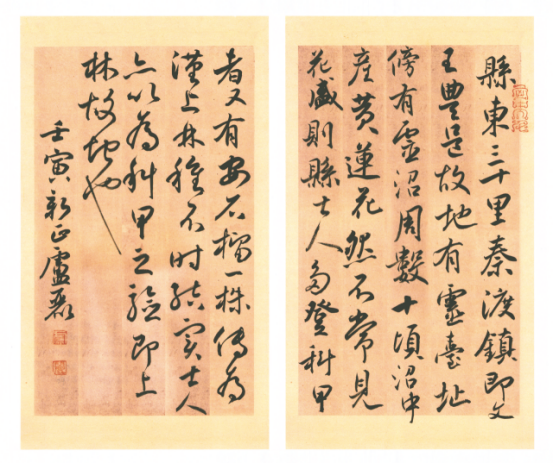 縣東三十里秦渡鎮即文
王豐邑故地有靈臺址
傍有靈沼周數十頃沼中
產黃蓮花然不常見
花盛則縣士人多登科甲
者又有安石榴一株傳為
漢上林種不時結實士人
亦以為科甲之驗即上
林故地也
壬寅新正盧磊